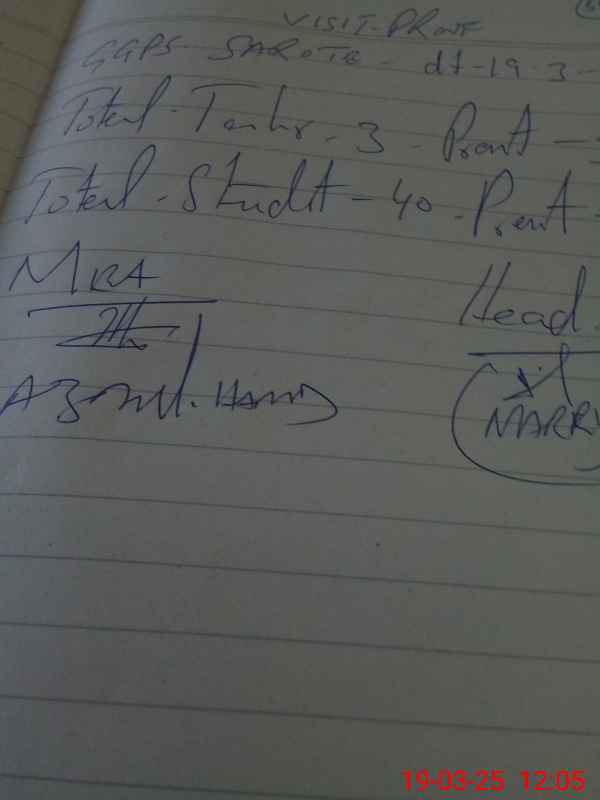 VISIT-PROOF
GGPS SAROTE - dt-19-3-
Total - Teacher - 3 - Prent -
Total - Studt - 40 - Prent -
MEA
Head.
Abdul. Hamid
19-03-25 12:05